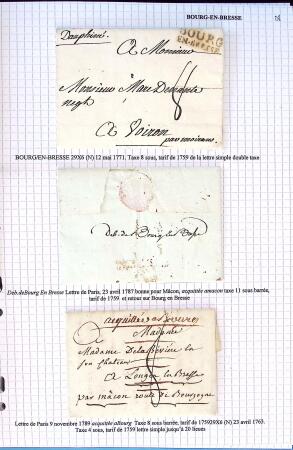 BOURG-EN-BRESSE
Dauphiné
BOURG
EN-BRESSE
A Monsieur
Monsieur Marc
negt
8
A Voiron
par moirans
BOURG/EN-BRESSE 29X6 (N) 12 mai 1771. Taxe 8 sous, tarif de 1759 de la lettre simple double taxe
Deb. de Bourg
Deb.deBourg En Bresse Lettre de Paris, 23 avril 1787 bonne pour Mâcon, acquittée amacon taxe 11 sous barrée,
tarif de 1759 et retour sur Bourg en Bresse
A Madame
Madame
son chateau
A en Bresse
par mâcon route de Bourgogne
Lettre de Paris 9 novembre 1789 acquittée albourg Taxe 8 sous barrée, tarif de 175929X6 (N) 23 avril 1763.
Taxe 4 sous, tarif de 1759 lettre simple jusqu'à 20 lieues